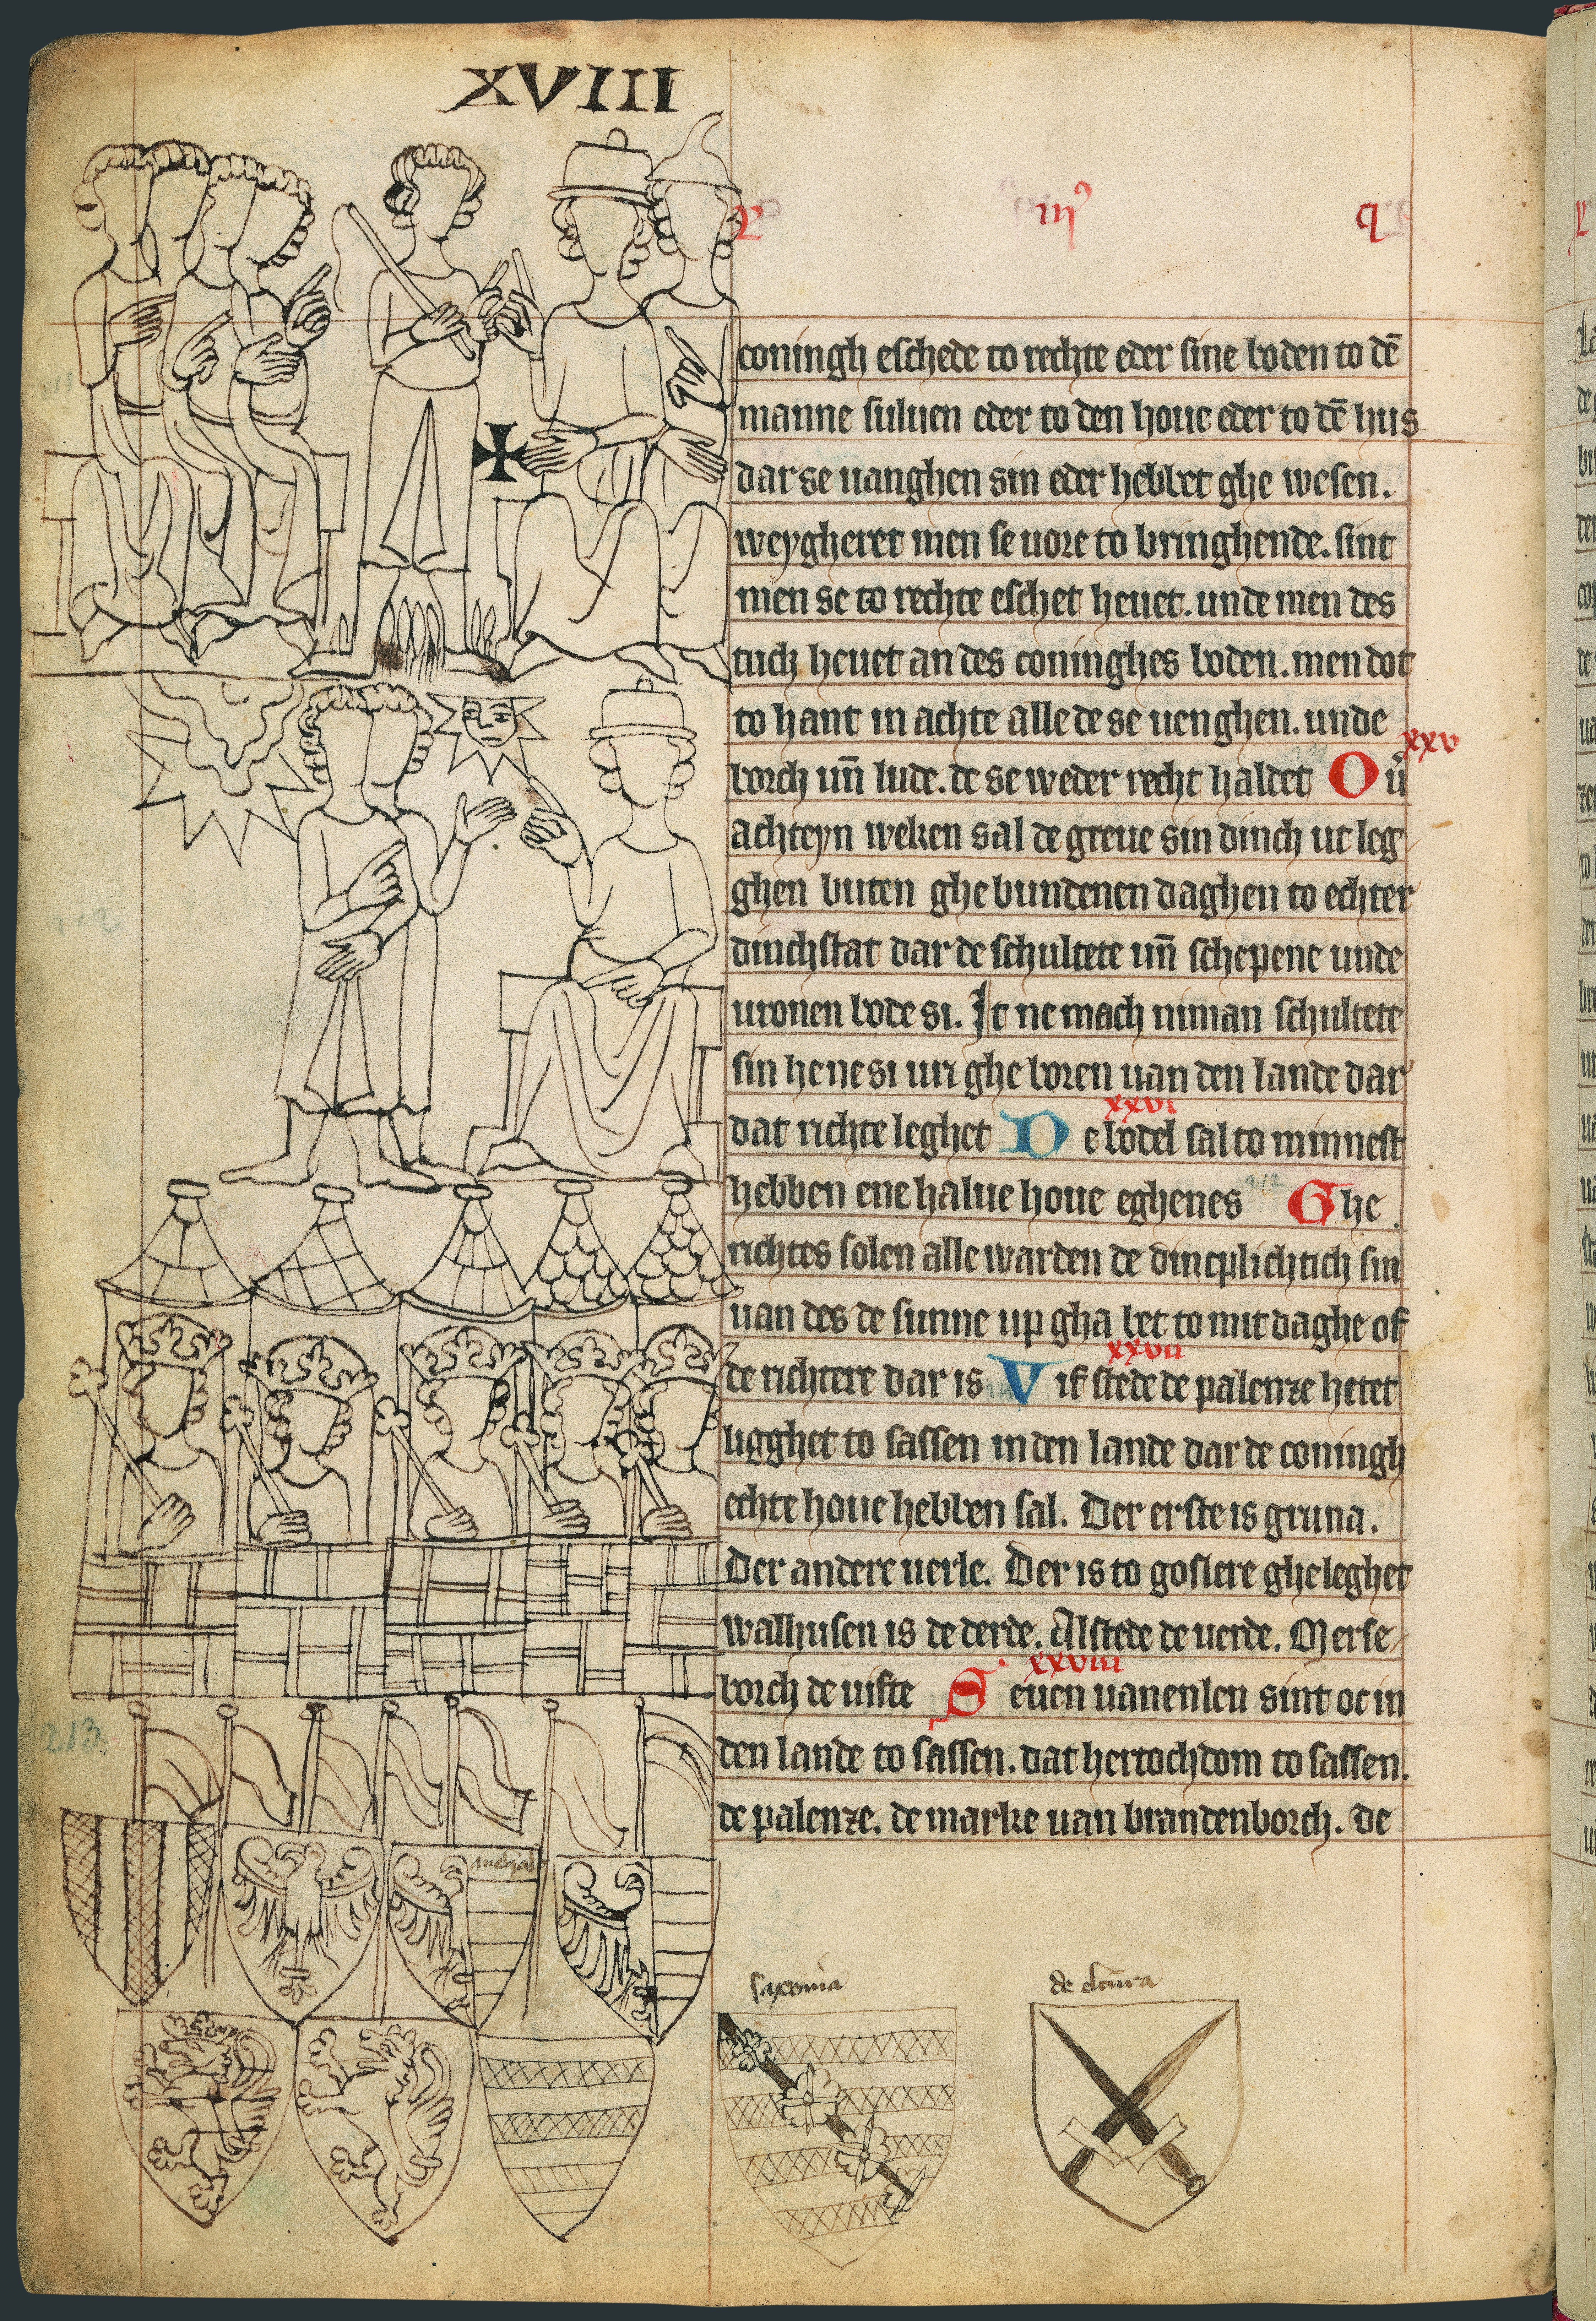 XVIII
coningh eschede to rechte eder sine boden to dē
manne suluen eder to den houe eder to dē hus
dar se uanghen sin eder hebbet ghe wesen.
weygheret men se uore to bringhende. sint
men se to rechte eschet heuet. unde men des
tuch heuet an des coninghes boden. men dot
to hant in achte alle de se uenghen. unde
xxv
borch un̄ lude. de se weder recht haldet Ou̓
achteyn weken sal de greue sin dinch ut leg
ghen buten ghe bundenen daghen to echter
dinchstat dar de schultete un̄ schepene unde
uronen bode si. It ne mach niman schultete
sin he ne si uri ghe boren uan den lande dar
xxvi
dat richte leghet De bodel sal to minnest
hebben ene halue houe eghenes 212 Ghe
richtes solen alle warden de dincplichtich sin
uan des de sunne up gha bet to mit daghe of
xxvii
de richtere dar is Vif stede de palenze hetet
ligghet to sassen in den lande dar de coningh
echte houe hebben sal. Der erste is gruna.
Der andere uerle. Der is to goslere gheleghet
walhusen is de derde. Alstede de uerde. Merse
xxviii
borch de uifte Seuen uanenlen sint oc in
den lande to sassen. dat hertochdom to sassen.
de palenze. de marke uan brandenborch. de
212
213
saxonia